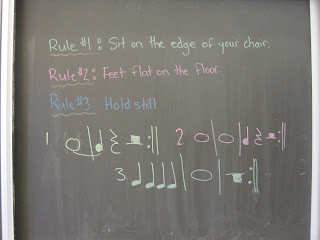 Rule #1: Sit on the edge of your chair.
Rule #2: Feet flat on the floor.
Rule #3: Hold still
1. 2
3.